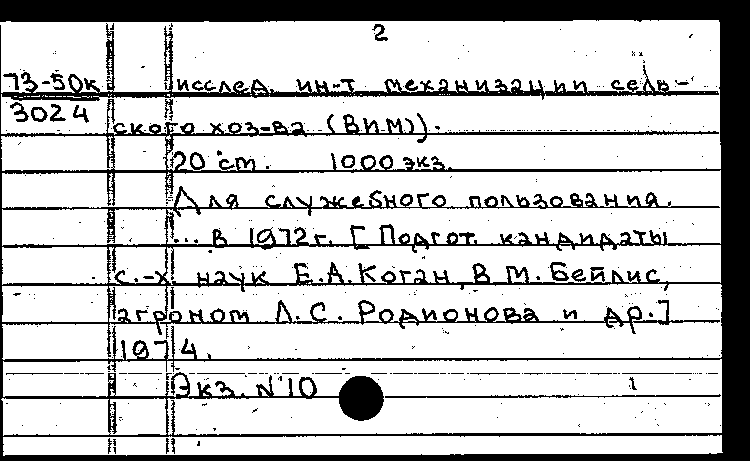 2
73-50к исслед. ин-т механизации сель-
3024
ского хоз-ва (ВИМ)).
20 ст. 1000 экз.
Для служебного пользования.
... в 1972 г. [Подгот. кандидаты
с.-х. наук Е.А.Коган, В.М.Бейлис,
агроном Л.С.Родионова и др.]
1974.
Экз. N 10